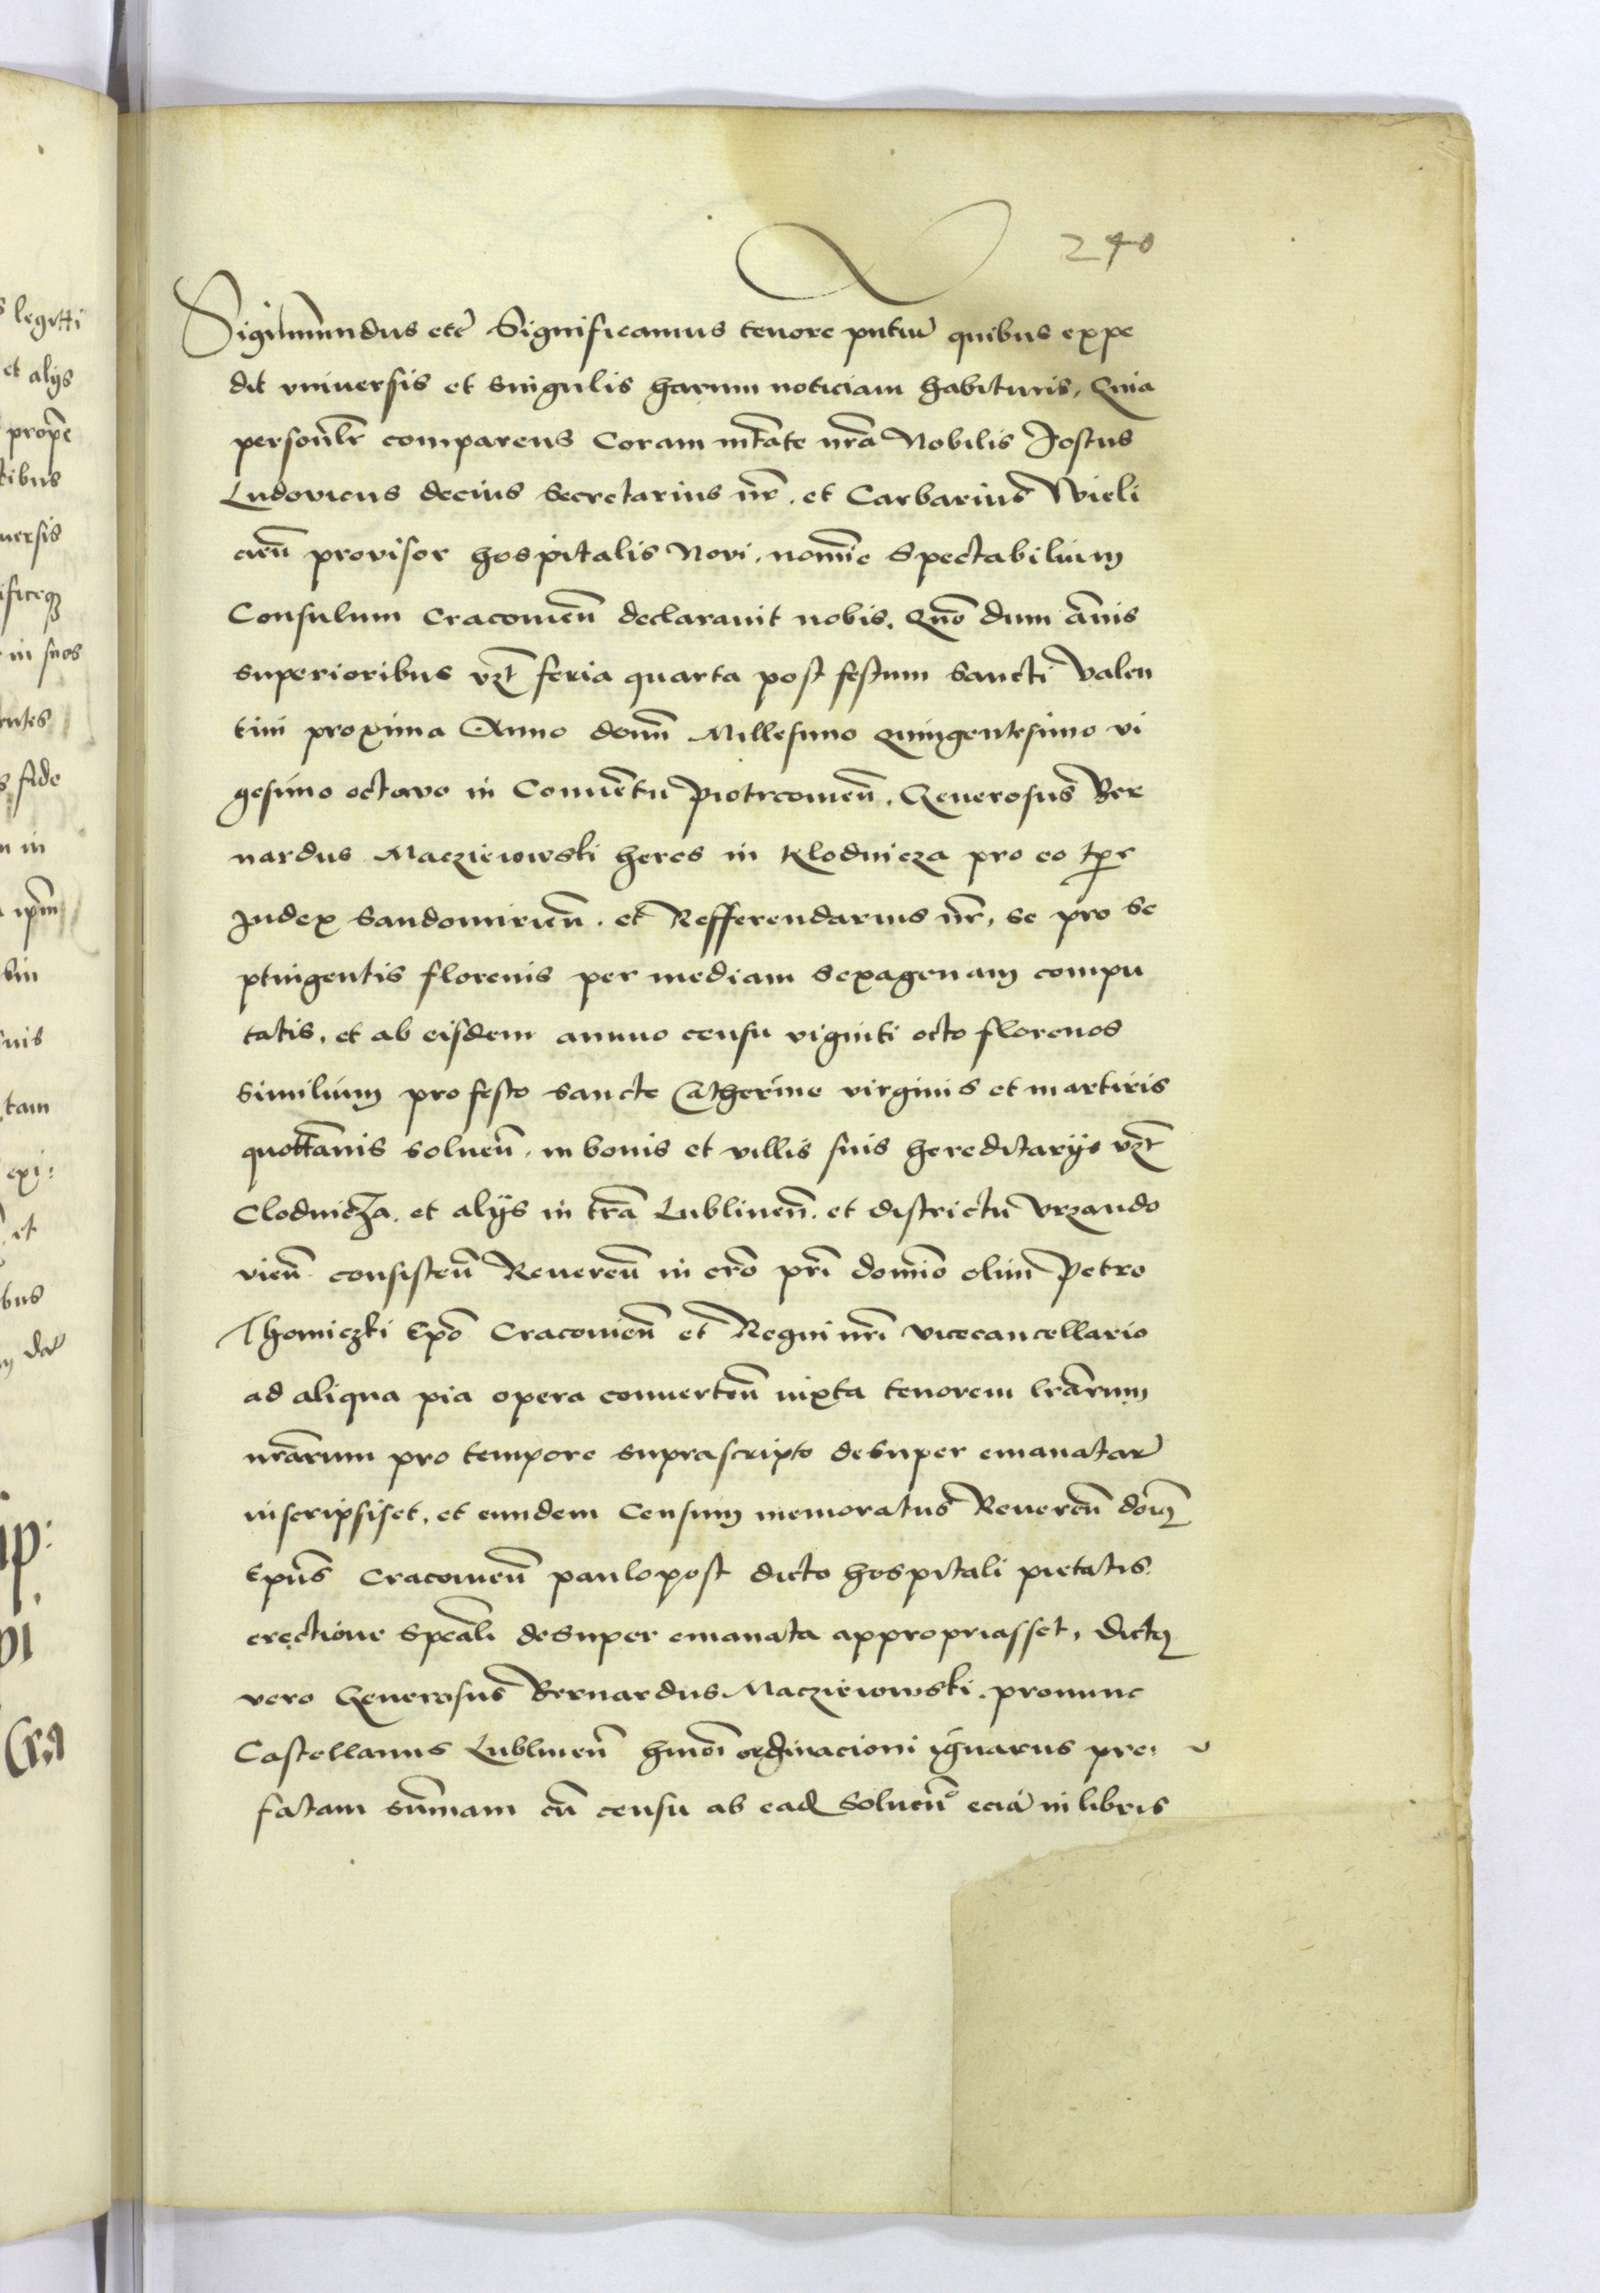 240
Sigismundus etc̃ Significamus tenore pñtiũ quibus expe
dit vniversis et singulis harum noticiam habituris, Quia
personlr̃ comparens Coram mtãte nrã Nobilis Jostus
Ludovicus decius Secretarius nr̃. et Carbarius Wieli
cieñ provisor hospitalis Novi, nomĩe Spectabilium
Consulum Cracovieñ declaravit nobis. Quõ dum ãnis
superioribus vzt̃ feria quarta post festum Sancti Valen
tini proxima Anno domĩ Millesimo Quingentesimo vi
gesimo octavo in Convẽtu Piotrcovieñ. Generosus Ber
nardus Macziewowski heres in Klodnicza pro eo tpr̃
Judex Sandomirieñ. et Refferendarius nr̃, se pro se
ptingentis florenis per mediam Sexagenam compu
tatis, et ab eisdem annuo censu viginti octo florenos
similium pro festo Sancte Catherine virginis et martiris
quottãnis solueñ. in bonis et villis suis hereditarijs vzt̃
Clodnicza. et alijs in trã Lublineñ. et districtu Vrzando
vieñ consisteñ Revereñ in crõ prĩ domĩo olim Petro
Thomiczki Epõ Cracovieñ et Regni nrĩ vicecancellario
ad aliqua pia opera converteñ iuxta tenorem lrãrum
nrãrum pro tempore suprascripto desuper emanatar̃
inscripsiset, et eundem Censum memoratus Revereñ doĩs
Epũs Cracovieñ paulo post dicto hospitali pietatis
erectione speãli desuper emanata appropriasset, dictus
vero Generosus Bernardus Macziewowski. pronunc
Castellanus Lublineñ hmõi ordinacioni ignarus pre:
fatam sum̃am cũ censu ab ead solueñ eciã in libris